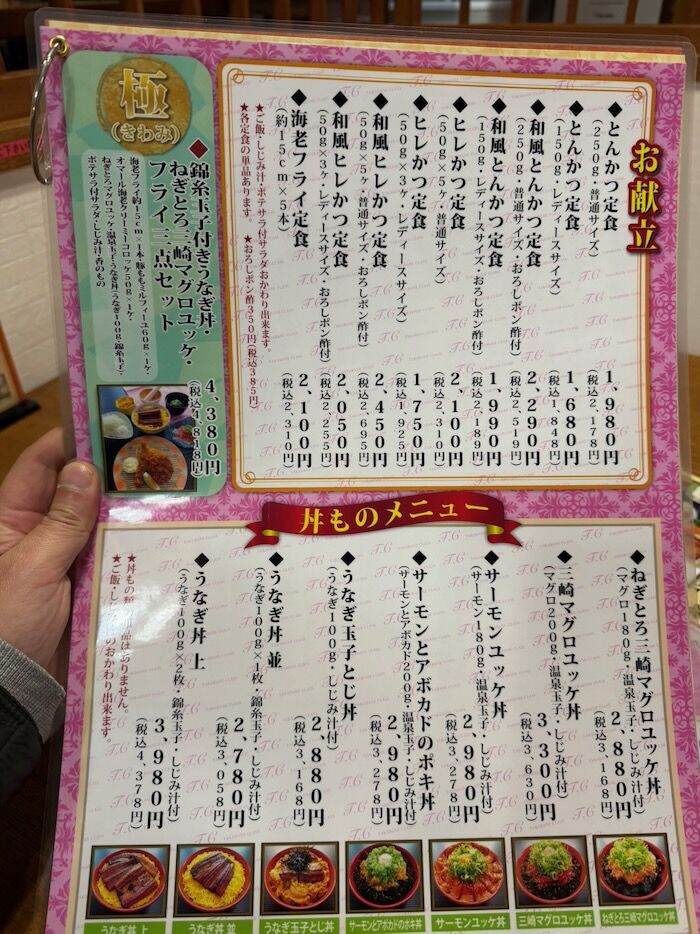 お献立
◆とんかつ定食
(250g・普通サイズ)
1,980円
(税込2,178円)
◆とんかつ定食
(150g・レディースサイズ)
1,680円
(税込1,848円)
◆和風とんかつ定食
(250g・普通サイズ・おろしポン酢付)
2,290円
(税込2,519円)
◆和風とんかつ定食
(150g・レディースサイズ・おろしポン酢付)
1,990円
(税込2,189円)
◆ヒレかつ定食
(50g×5ヶ・普通サイズ)
2,100円
(税込2,310円)
◆ヒレかつ定食
(50g×3ヶ・レディースサイズ)
1,750円
(税込1,925円)
◆和風ヒレかつ定食
(50g×5ヶ・普通サイズ・おろしポン酢付)
2,450円
(税込2,695円)
◆和風ヒレかつ定食
(50g×3ヶ・レディースサイズ・おろしポン酢付)
2,050円
(税込2,255円)
◆海老フライ定食
(約15cm×5本)
2,100円
(税込2,310円)
★ご飯・しじみ汁・ポテサラ付サラダおかわり出来ます。
★各定食の単品あります。 ★おろしポン酢350円(税込385円)
極
(きわみ)
◆錦糸玉子付きうなぎ丼・
ねぎとろ三崎マグロユッケ・
フライ三点セット
海老フライ約15cm×1本・豚ももミルフィーユ60g×1ヶ・
オマール海老クリーミーコロッケ50g×1ヶ・
ねぎとろマグロユッケ・温泉玉子・うなぎ丼(うなぎ100g・錦糸玉子)・
ポテサラ付サラダ・しじみ汁・香のもの
4,380円
(税込4,818円)
丼ものメニュー
◆ねぎとろ三崎マグロユッケ丼
(マグロ180g・温泉玉子・しじみ汁付)
2,880円
(税込3,168円)
◆三崎マグロユッケ丼
(マグロ200g・温泉玉子・しじみ汁付)
3,300円
(税込3,630円)
◆サーモンユッケ丼
(サーモン180g・温泉玉子・しじみ汁付)
2,980円
(税込3,278円)
◆サーモンとアボカドのポキ丼
(サーモンとアボカド200g・温泉玉子・しじみ汁付)
2,980円
(税込3,278円)
◆うなぎ玉子とじ丼
(うなぎ100g・しじみ汁付)
2,880円
(税込3,168円)
◆うなぎ丼 並
(うなぎ100g×1枚・錦糸玉子・しじみ汁付)
2,780円
(税込3,058円)
◆うなぎ丼 上
(うなぎ100g×2枚・錦糸玉子・しじみ汁付)
3,980円
(税込4,378円)
★丼もの類の単品はありません。
★ご飯・しじみ汁のおかわり出来ます。
うなぎ丼 上
うなぎ丼 並
うなぎ玉子とじ丼
サーモンとアボカドのポキ丼
サーモンユッケ丼
三崎マグロユッケ丼
ねぎとろ三崎マグロユッケ丼